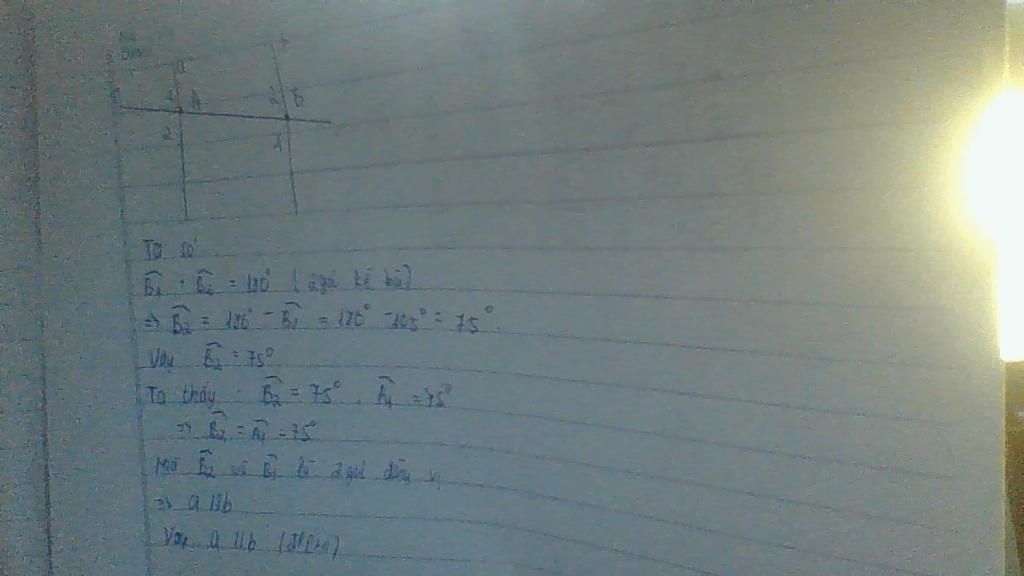 a
A
2 B
2
Ta có
B̂₁ + B̂₂ = 180° ( 2 góc kề bù)
=> B̂₂ = 180° - B̂₁ = 180° - 105° = 75°.
Vậy B̂₂ = 75°
Ta thấy : B̂₂ = 75° , Â₁ = 75°
=> B̂₂ = Â₁ = 75°
Mà B̂₂ và là 2 góc đồng vị
=> a // b
Vậy a // b